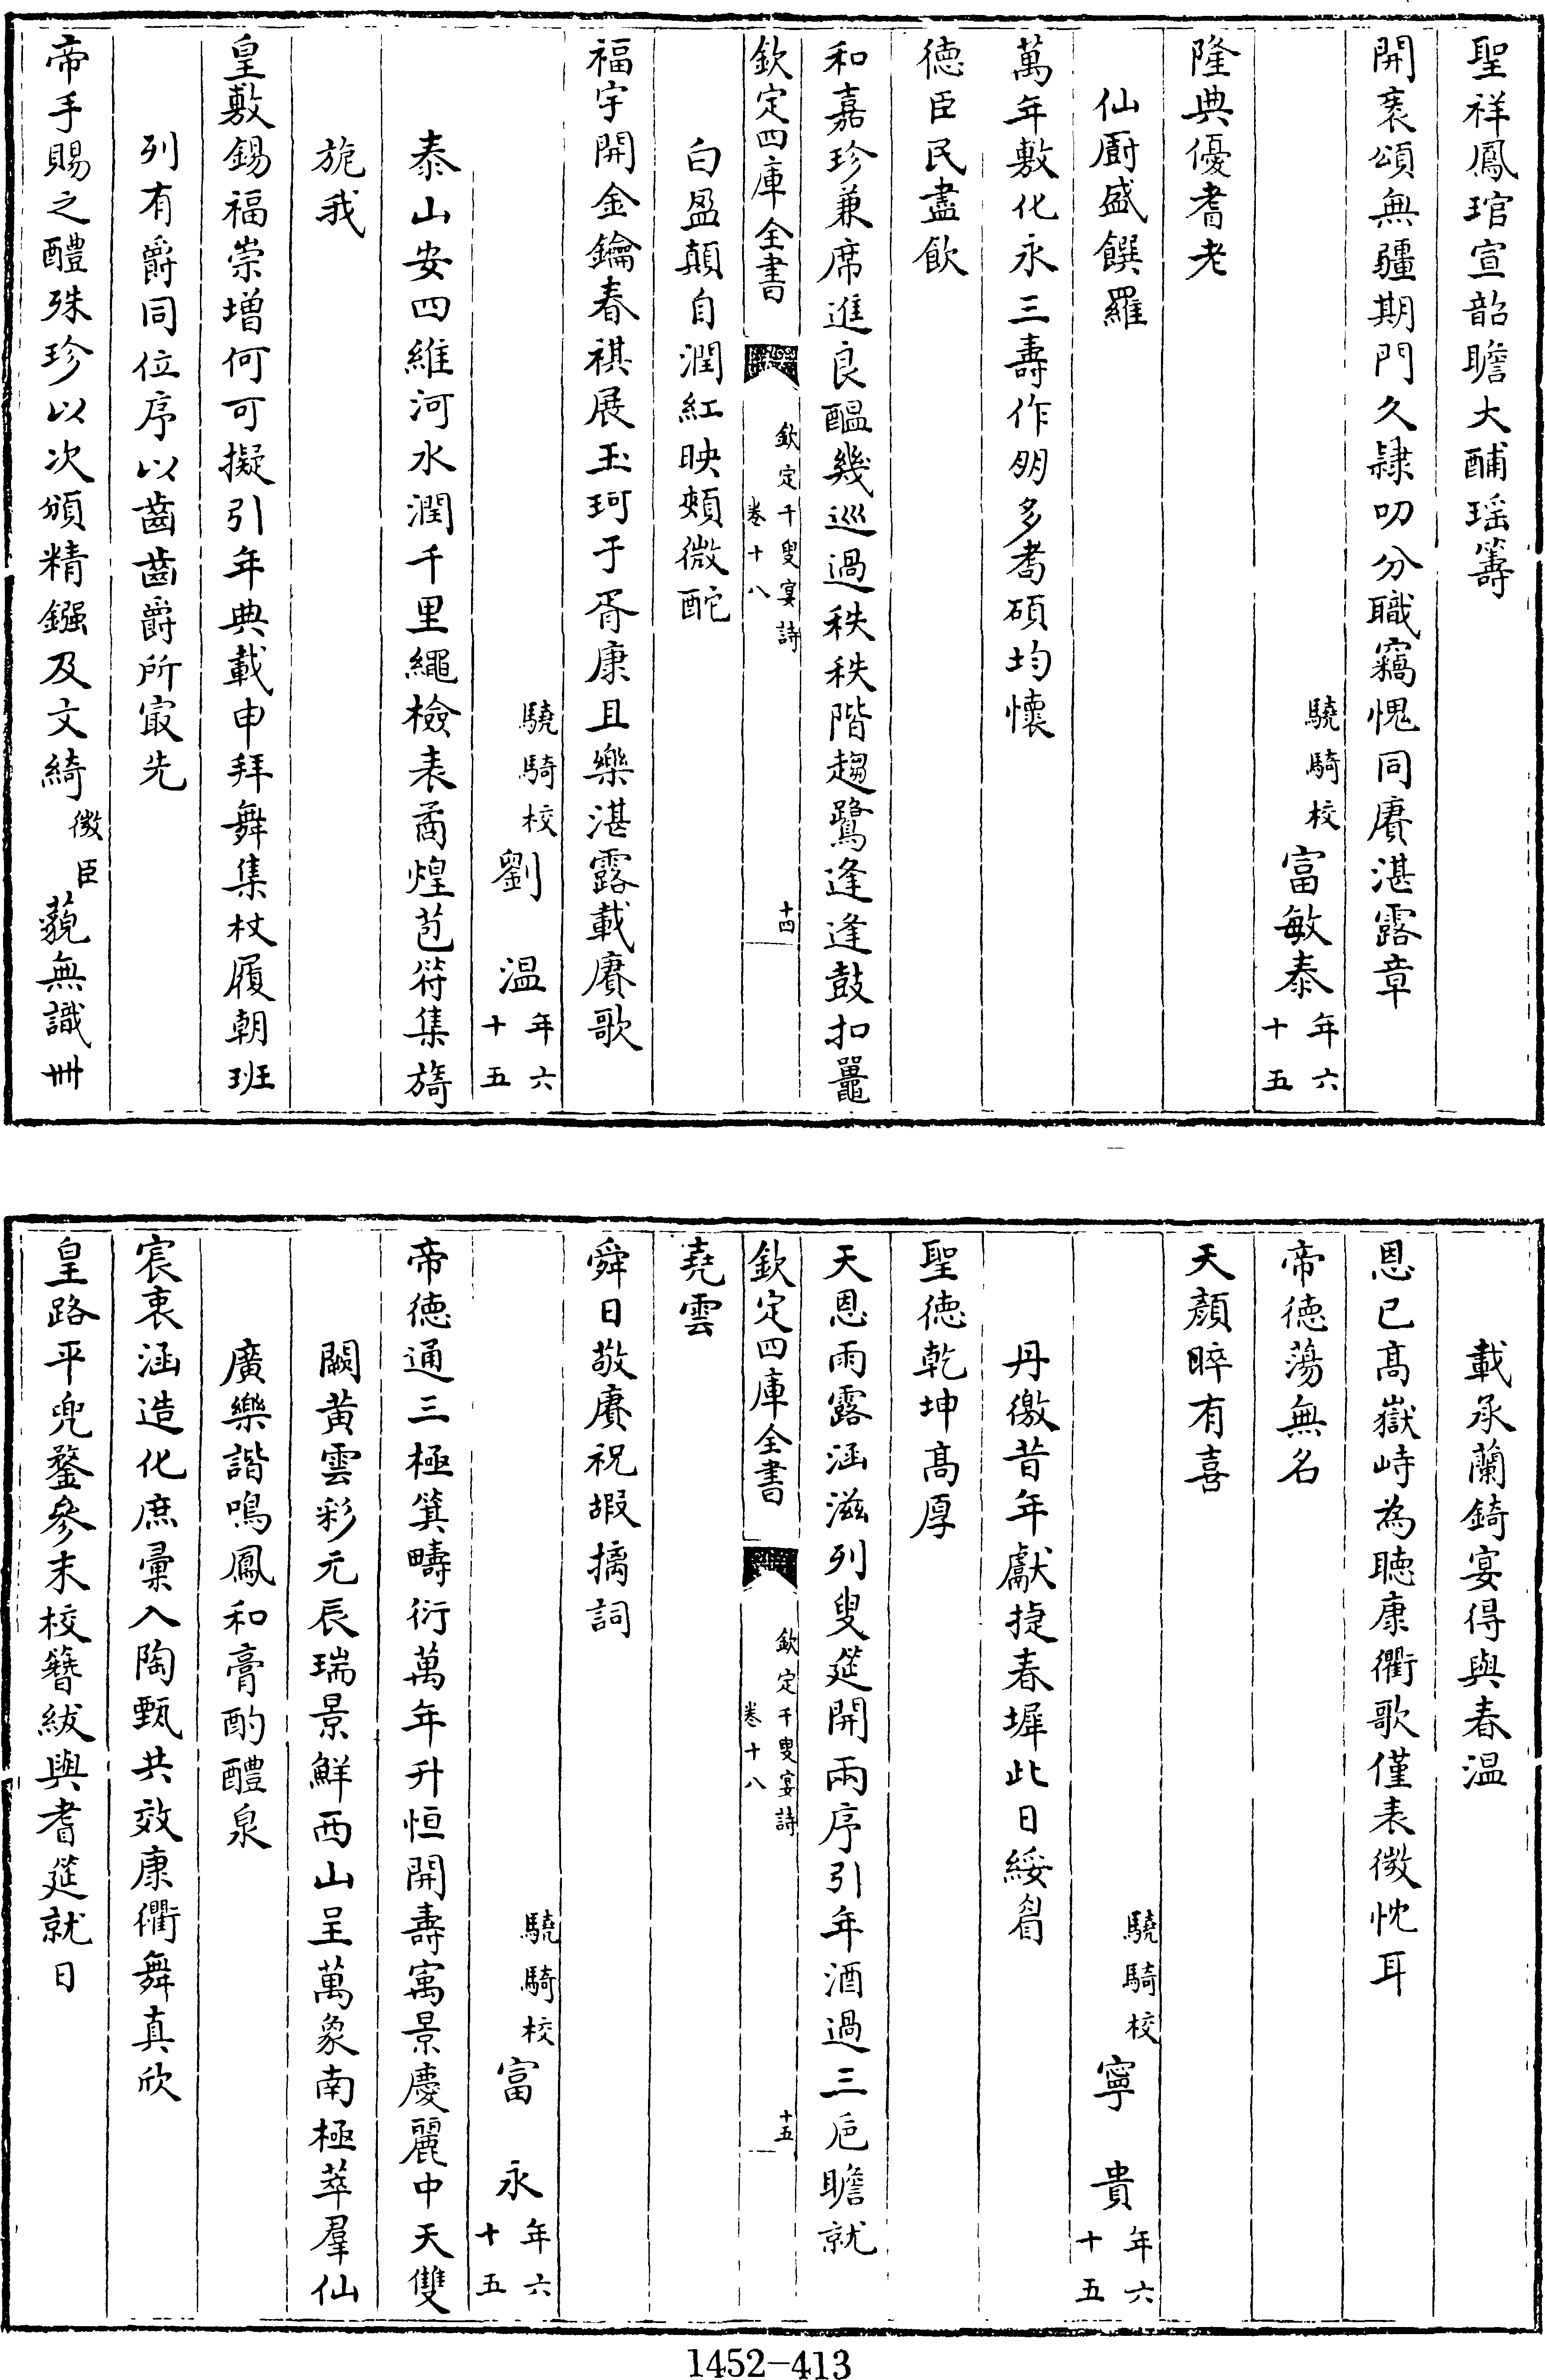 聖祥鳳琯宣韶瞻大酺瑶籌
開袠頌無疆期門久隷叨分職竊愧同賡湛露章
驍騎校富敏泰年六十五
隆典優耆老
仙廚盛饌羅
萬年敷化永三壽作朋多耇碩均懷
徳臣民盡飲
和嘉珍兼席進良醖幾巡過秩秩階趨鷺逢逢鼓扣鼉
欽定四庫全書
欽定千叟宴詩
卷十八
十四
白盈顛自潤紅映頰微酡
福宇開金鑰春祺展玉珂于胥康且樂湛露載賡歌
驍騎校劉温年六十五
泰山安四維河水潤千里繩檢表矞煌苞符集旖
旎我
皇敷錫福崇增何可擬引年典載申拜舞集杖履朝班
列有爵同位序以齒齒爵所㝡先
帝手賜之醴殊珍以次頒精鏹及文綺微臣藐無識卌
載承蘭錡宴得與春温
恩已髙嶽峙為聴康衢歌僅表微忱耳
帝徳蕩無名
天顔睟有喜
驍騎校寧貴年六十五
丹徼昔年獻捷春墀此日綏眉
聖徳乾坤髙厚
天恩雨露涵滋列叟筵開兩序引年酒過三巵瞻就
欽定四庫全書
欽定千叟宴詩
卷十八
十五
堯雲
舜日敬賡祝嘏摛詞
驍騎校富永年六十五
帝徳通三極箕疇衍萬年升恒開壽㝢景慶麗中天雙
闕黄雲彩元辰瑞景鮮西山呈萬象南極萃羣仙
廣樂諧鳴鳳和膏酌醴泉
宸衷涵造化庶彚入陶甄共效康衢舞真欣
皇路平兜鍪參末校簪紱與耆筵就日
1452-413